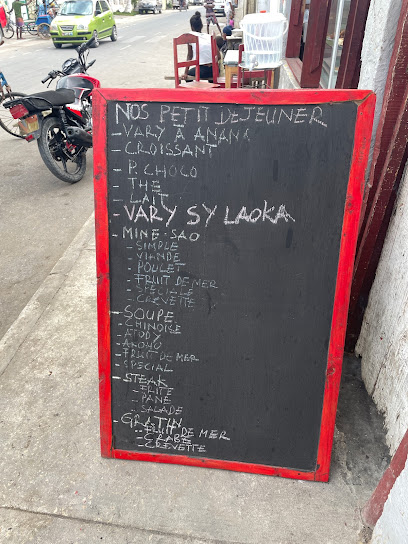 NOS PETIT DEJEUNER
- VARY À ANANA
- CROISSANT
- P. CHOCO
- THE
- LAIT
- VARY SY LAOKA
- MINE-SAO
- SIMPLE
- VIANDE
- POULET
- FRUIT DE MER
- SPECIALE
- CREVETTE
- SOUPE
- CHINOISE
- ATODY
- AKOHO
- FRUIT DE MER
- SPECIAL
- STEAK
- FRITE
- PANE
- SALADE
- GRATIN
- FRUIT DE MER
- CRABE
- CREVETTE